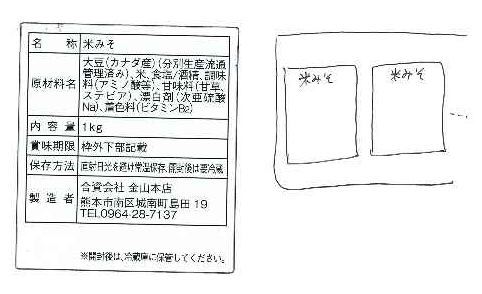 名称 米みそ
原材料名 大豆(カナダ産)(分別生産流通
管理済み)、米、食塩/酒精、調味
料(アミノ酸等)、甘味料(甘草、
ステビア)、漂白剤(次亜硫酸
Na)、着色料(ビタミンB₂)
内容量 1kg
賞味期限 枠外下部記載
保存方法 直射日光を避け常温保存、開封後は要冷蔵
製造者 合資会社 金山本店
熊本市南区城南町島田 19
TEL0964-28-7137
※開封後は、冷蔵庫に保管してください。
米みそ
米みそ